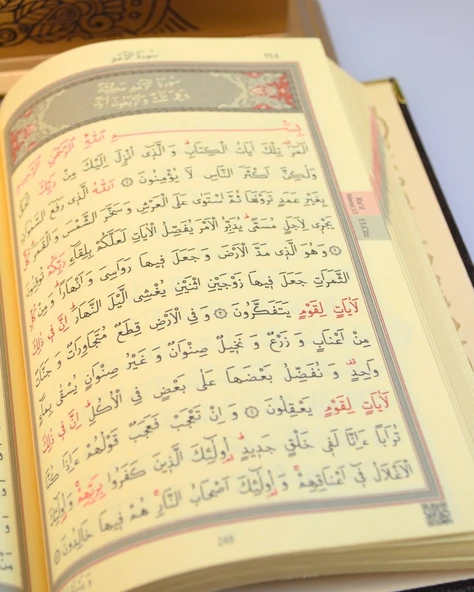 سورة الرعد
المر تلك آيات الكتاب و الذى أنزل إليك من ربك الحق
ولكن أكثر الناس لا يؤمنون ۝ الله الذى رفع السموات
بغير عمد ترونها ثم استوى على العرش و سخر الشمس و القمر كل
يجرى لأجل مسمى يدبر الأمر يفصل الآيات لعلكم بلقاء ربكم توقنون
۝ و هو الذى مد الأرض و جعل فيها رواسى و أنهارا و من كل
الثمرات جعل فيها زوجين اثنين يغشى الليل النهار إن فى ذلك
لآيات لقوم يتفكرون ۝ و فى الأرض قطع متجاورات و جنات
من أعناب و زرع و نخيل صنوان و غير صنوان يسقى بماء
واحد و نفضل بعضها على بعض فى الأكل إن فى ذلك
لآيات لقوم يعقلون ۝ و إن تعجب فعجب قولهم ءإذا كنا
ترابا ءإنا لفى خلق جديد أولئك الذين كفروا بربهم و أولئك
الأغلال فى أعناقهم و أولئك أصحاب النار هم فيها خالدون ۝
248